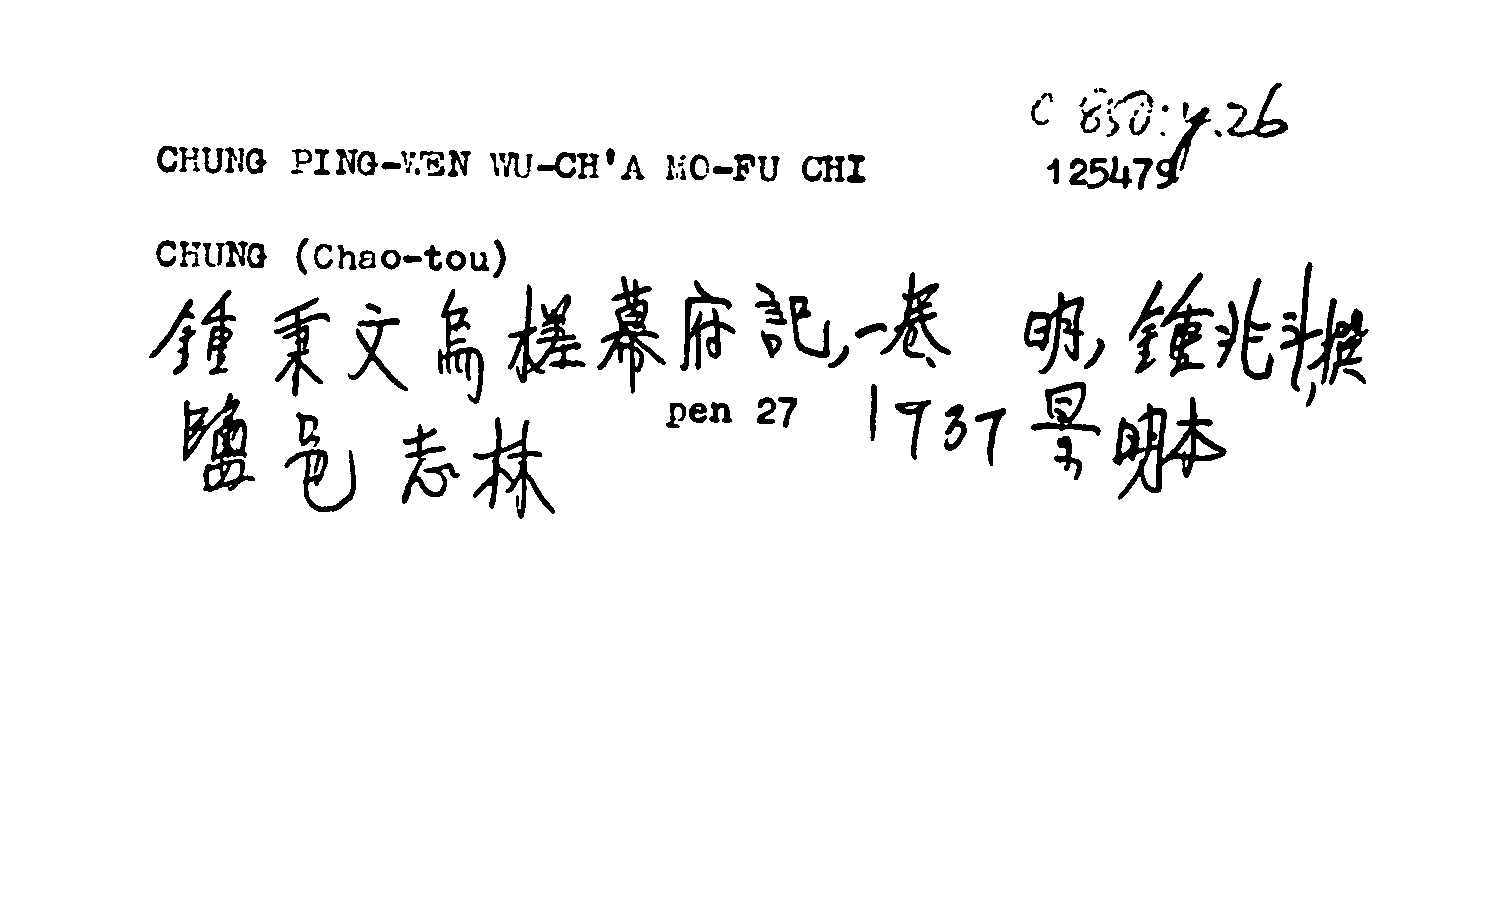 C 850:y.26
CHUNG PING-WEN WU-CH'A MO-FU CHI 125479
CHUNG (Chao-tou)
鍾秉文烏槎幕府記,一卷 明,鍾兆斗,撰
鹽邑志林 pen 27 1937 景明本